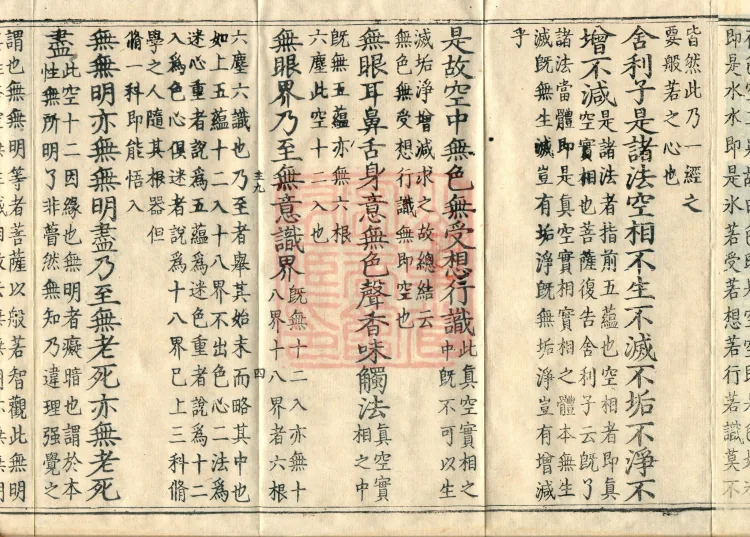 即是水水即是氷若受若想若行若識莫不
皆然此乃一經之
要般若之心也
舍利子是諸法空相不生不滅不垢不淨不
增不減
是諸法者指前五蘊也空相者即真
空實相也菩薩復告舍利子云既了
諸法當體即是真空實相實相之體本無生
滅既無生滅豈有垢淨既無垢淨豈有增減
乎
是故空中無色無受想行識
此真空實相之
中既不可以生
滅垢淨增減求之故總結云
無色無受想行識無即空也
無眼耳鼻舌身意無色聲香味觸法
真空實
相之中
既無五蘊亦無六根
六塵此空十二入也
無眼界乃至無意識界
既無十二入亦無十
八界十八界者六根
四
六塵六識也乃至者舉其始末而略其中也
如上五蘊十二入十八界不出色心二法爲
迷心重者說爲五蘊爲迷色重者說爲十二
入爲色心俱迷者說爲十八界已上三科脩
學之人隨其根器但
脩一科即能悟入
無無明亦無無明盡乃至無老死亦無老死
盡
此空十二因緣也無明者癡暗也謂於本
性無所明了非瞢然無知乃違理强覺之
謂也無無明等者菩薩以般若智觀此無明